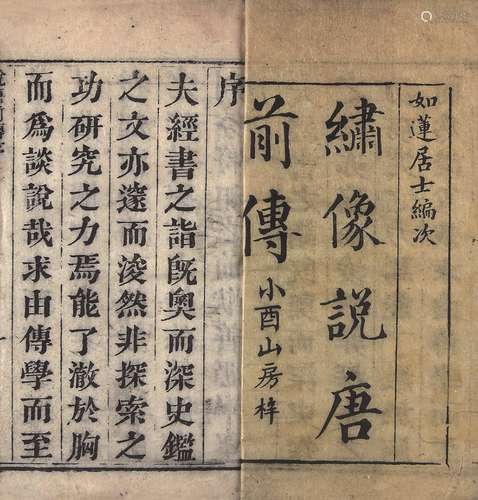 如蓮居士編次
繡像說唐
前傳
小酉山房梓
序
夫經書之詣旣奧而深史鑑
之文亦邃而浚然非探索之
功研究之力焉能了澈於胸
而為談說哉求由傳學而至